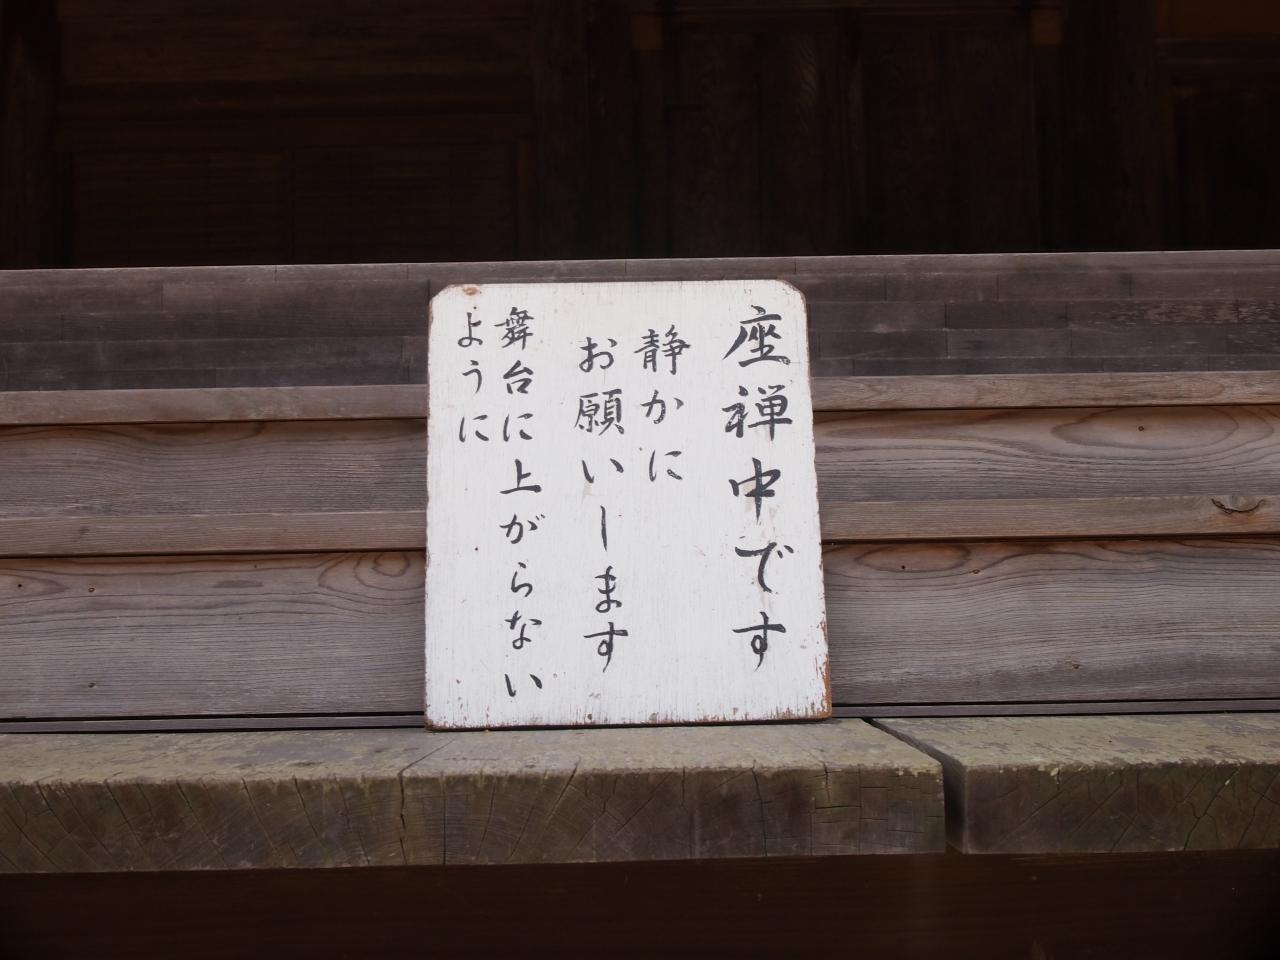 座禅中です
静かに
お願いします
舞台に上がらない
ように